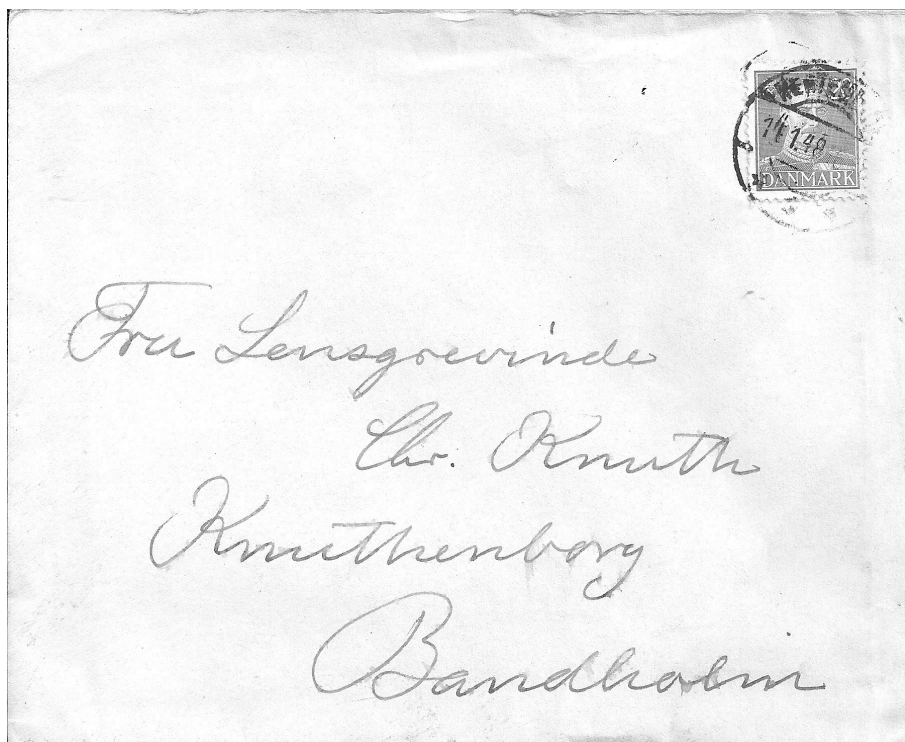 14.1.48
DANMARK
Fru Lensgrevinde
Chr. Knuth
Knuthenborg
Bandholm